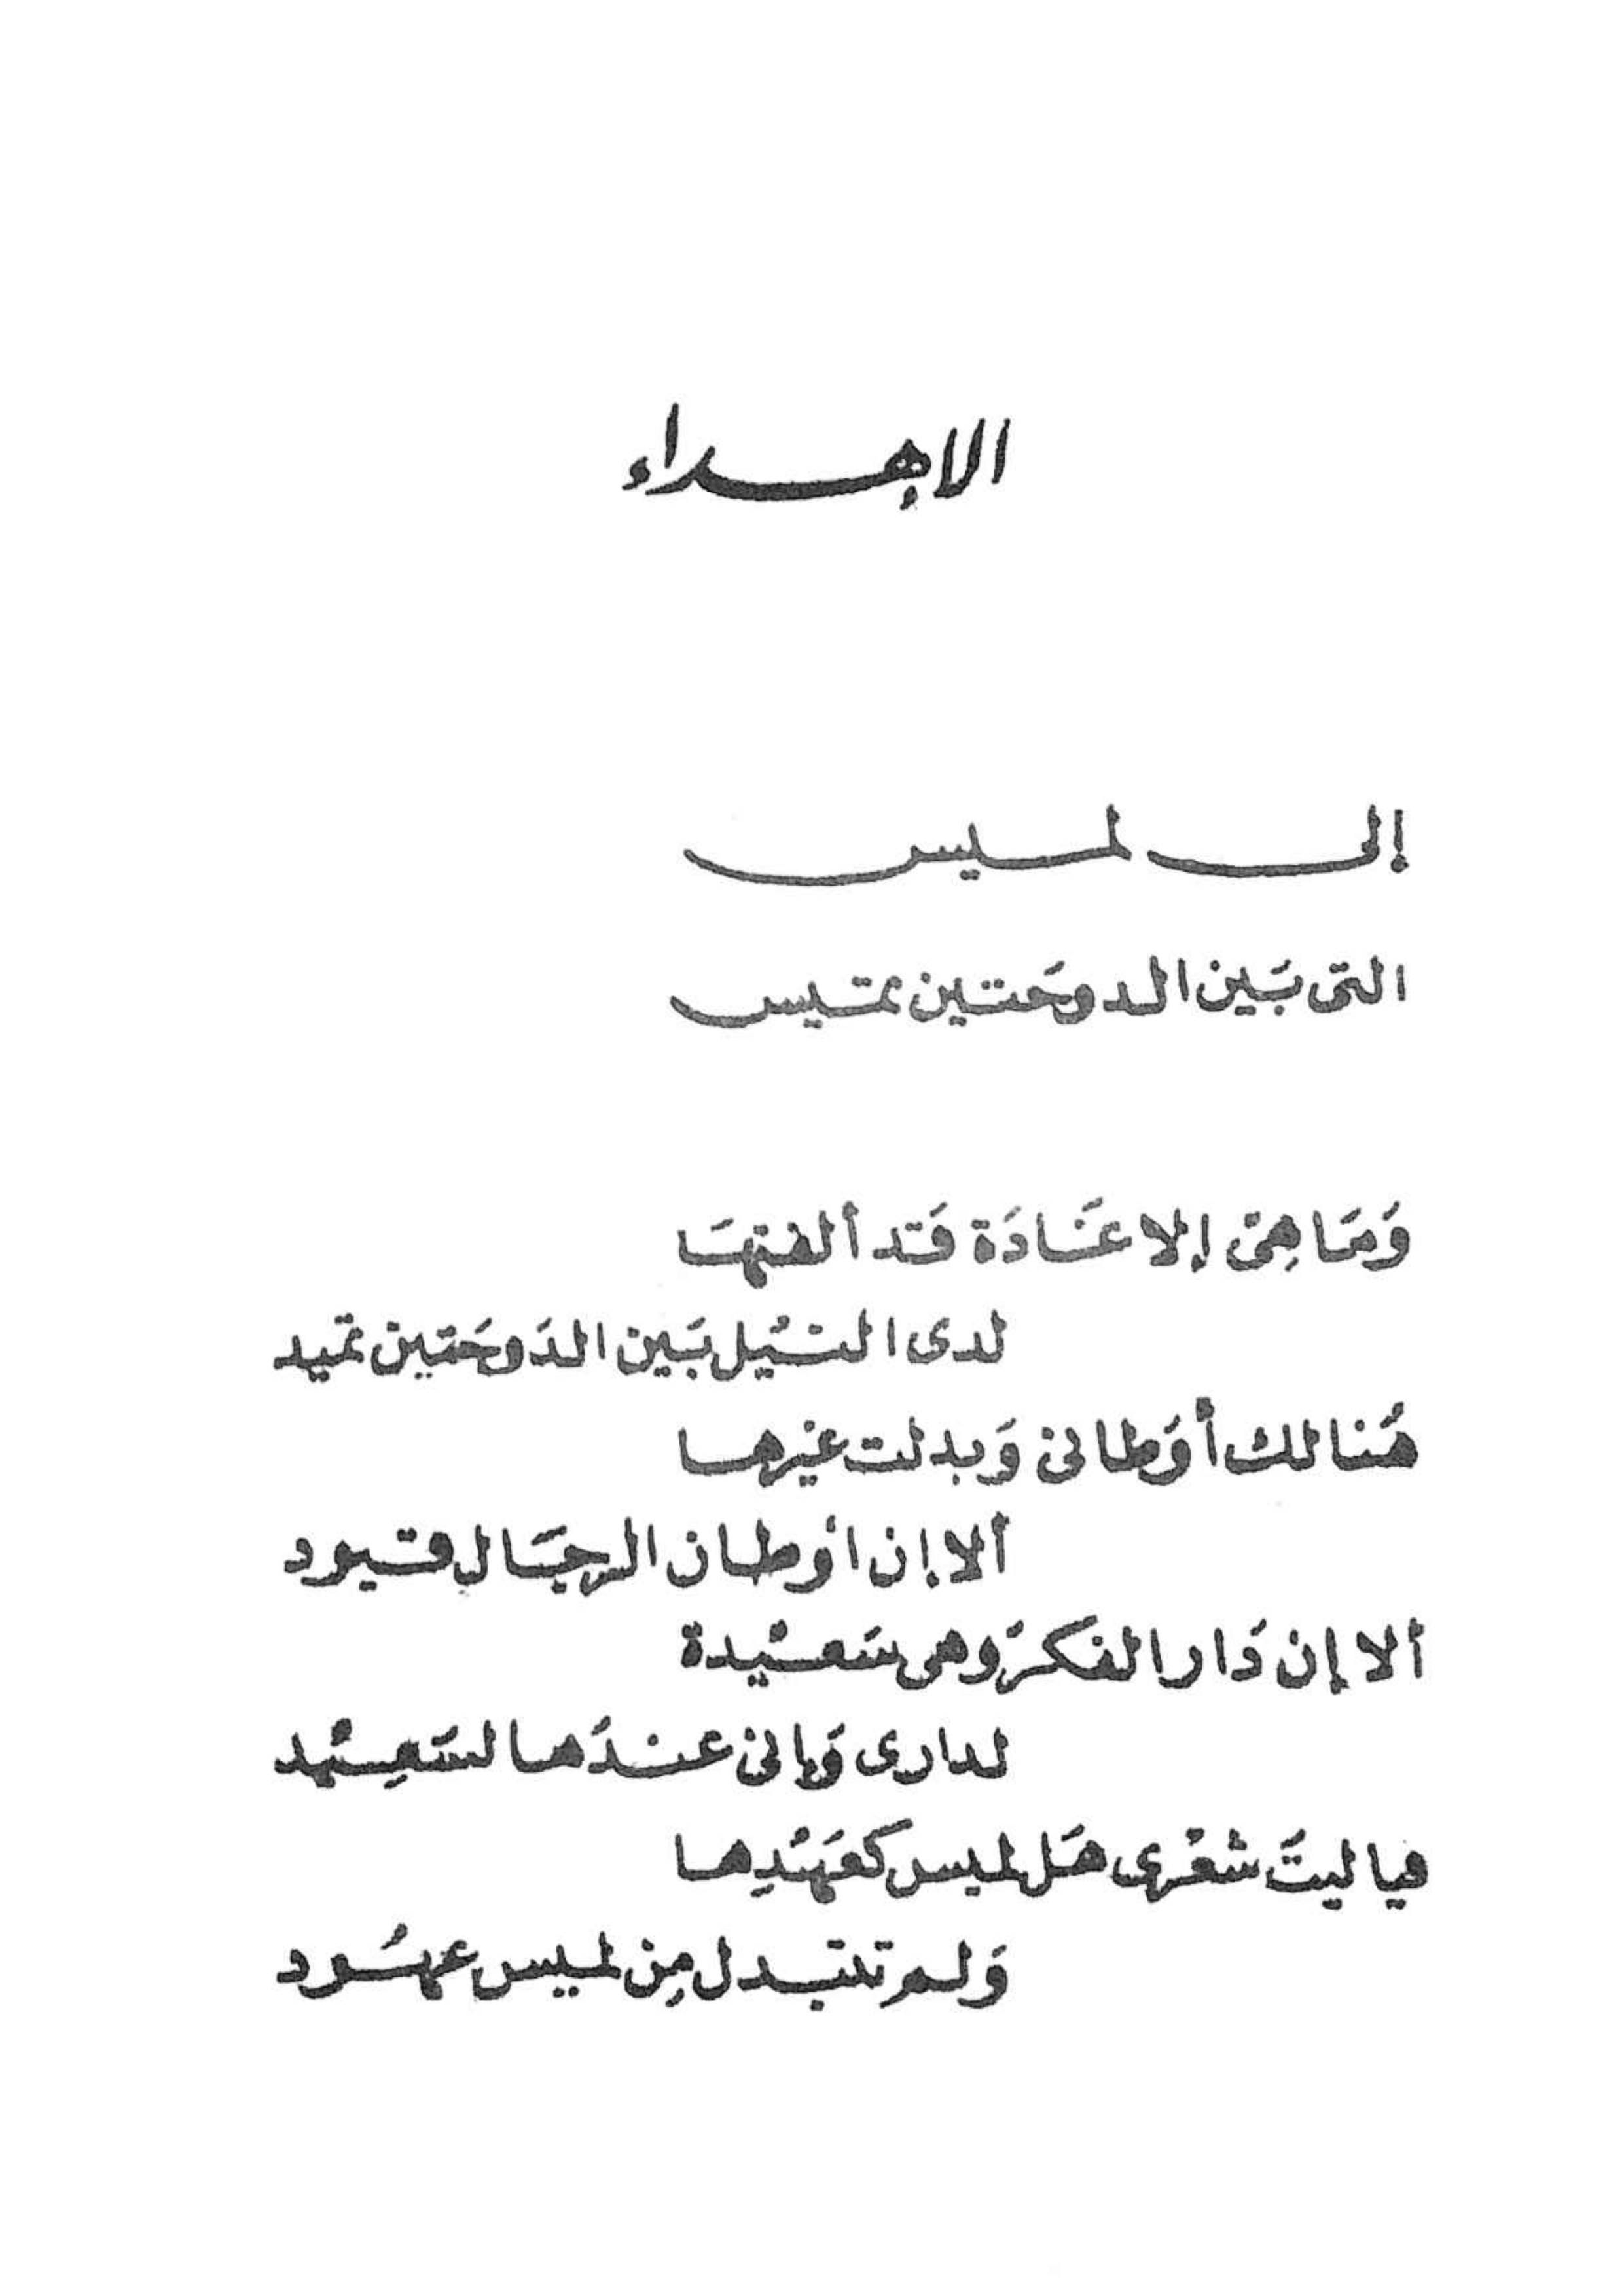 الإهداء
إلى لميس
التى بَين الدوحَتين تميس
وَمَا هِىَ إلا غَادَة قَد ألفتهَا
لدى النيْل بَين الدَوحَتين تميد
هُنالك أوَطانى وَبدلت غيرها
ألا إن أوطان الرجَال قيود
ألا إن دَار الفكرَ وهى سَعيْدة
لدارى وَإنى عندَها لسَعِيْد
فيا ليتَ شعْرى هَل لميس كعَهْدِها
وَلم تتبدل مِن لميس عهُود